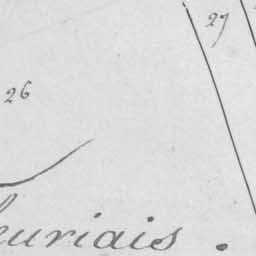 27
26
euriais.